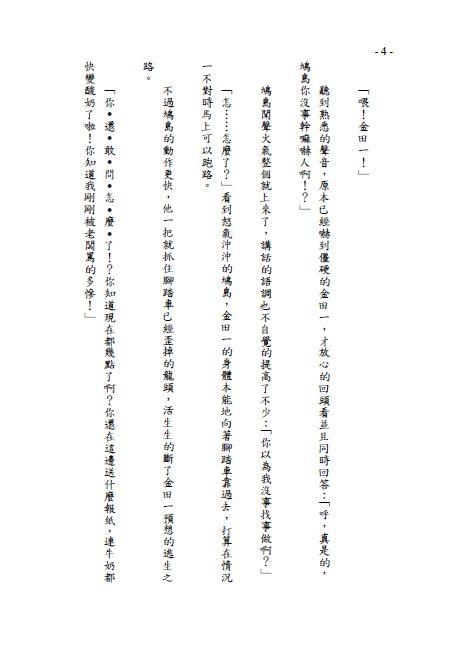 - 4 -
「喂！金田一！」
聽到熟悉的聲音，原本已經嚇到僵硬的金田一，才放心的回頭看並且同時回答：「呼，真是的，
鳩島你沒事幹嘛嚇人啊！？」
鳩島聞聲火氣整個就上來了，講話的語調也不自覺的提高了不少：「你以為我沒事找事做啊？」
「怎……怎麼了？」看到怒氣沖沖的鳩島，金田一的身體本能地向著腳踏車靠過去，打算在情況
一不對時馬上可以跑路。
不過鳩島的動作更快，他一把就抓住腳踏車已經歪掉的龍頭，活生生的斷了金田一預想的逃生之
路。
「你•還•敢•問•怎•麼•了！？你知道現在都幾點了啊？你還在這邊送什麼報紙，連牛奶都
快變酸奶了啦！你知道我剛剛被老闆罵的多慘！」